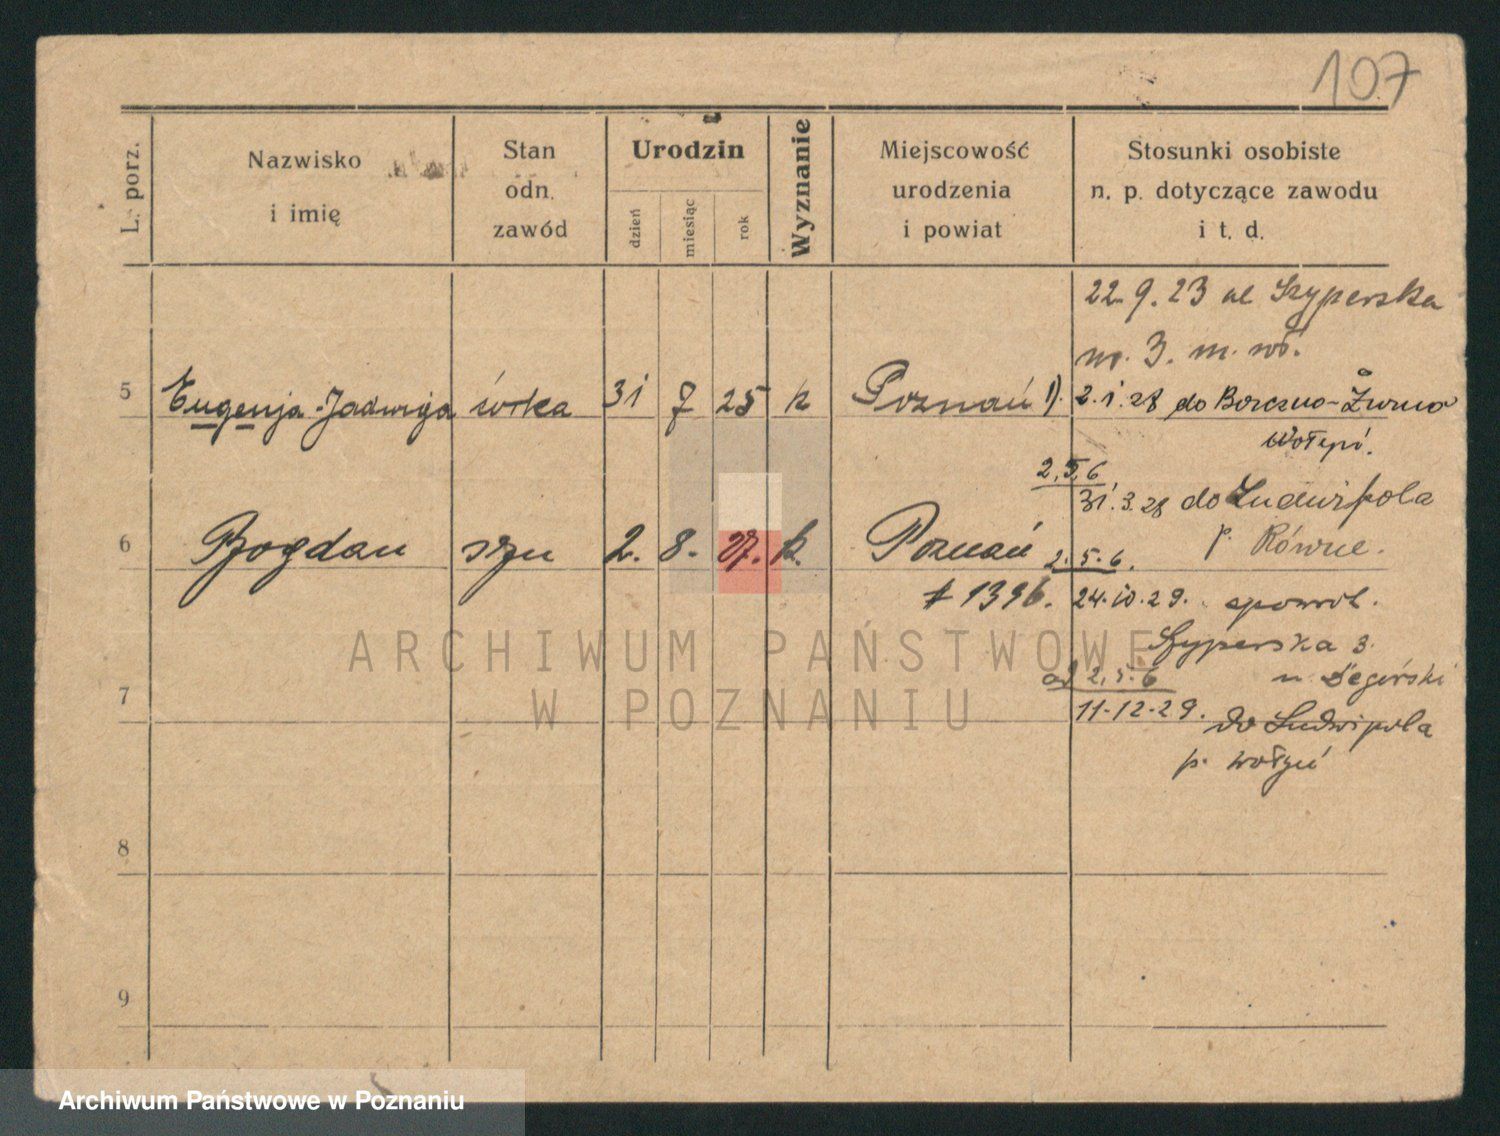 107
L. porz.
Nazwisko
i imię
Stan
odn.
zawód
Urodzin
dzień
miesiąc
rok
Wyznanie
Miejscowość
urodzenia
i powiat
Stosunki osobiste
n. p. dotyczące zawodu
i t. d.
22.9.23 ul Szyperska
nr. 3. m. wł.
5 Eugenja-Jadwiga córka 31 7 25 k Poznań 1). 2.1.28 do
Wołyń.
2,5,6
31.3.28 do Ludwipola
p. Równe.
6 Bogdan syn 2. 8. 27. k. Poznań
2.5.6.
# 1396. 24.10.29. spowrot.
Szyperska 3.
od 2,5.6 u Segórski
7 11-12-29. do Ludwipola
p. Wołyń
8
9
ARCHIWUM PAŃSTWOWE
W POZNANIU
Archiwum Państwowe w Poznaniu